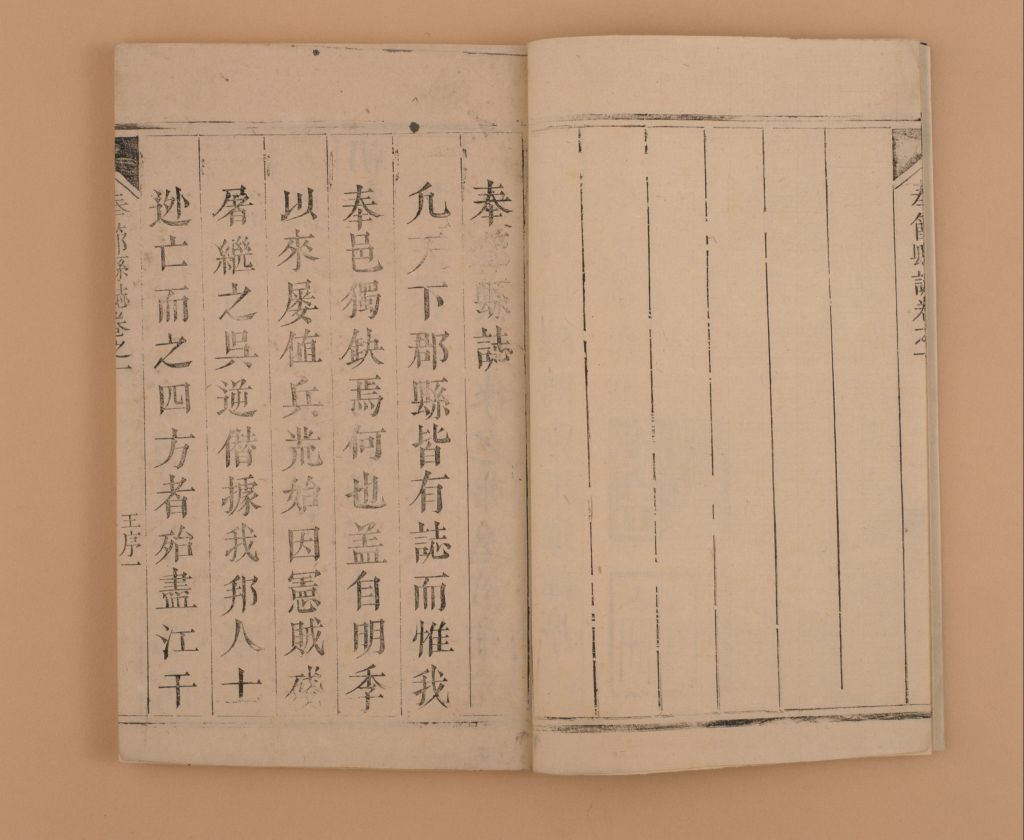 奉節縣誌卷之一
奉節縣誌
凢天下郡縣皆有誌而惟我
奉邑獨缺焉何也盖自明季
以來屡值兵荒始因憲賊殘
屠繼之吳逆僭據我邦人士
逊亡而之四方者殆盡江干
奉節縣誌卷之一
王序一